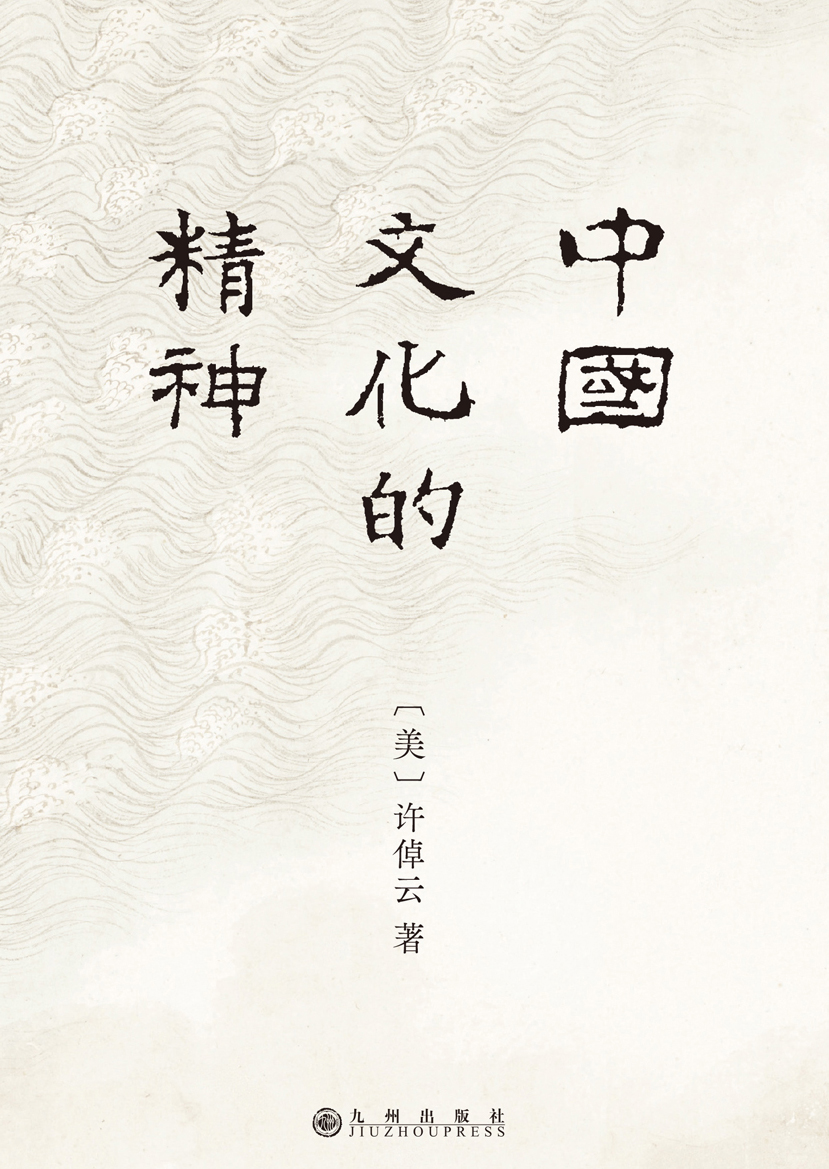 中國
文化的
精神
〔美〕许倬云 著
九州出版社
JIUZHOUPRESS